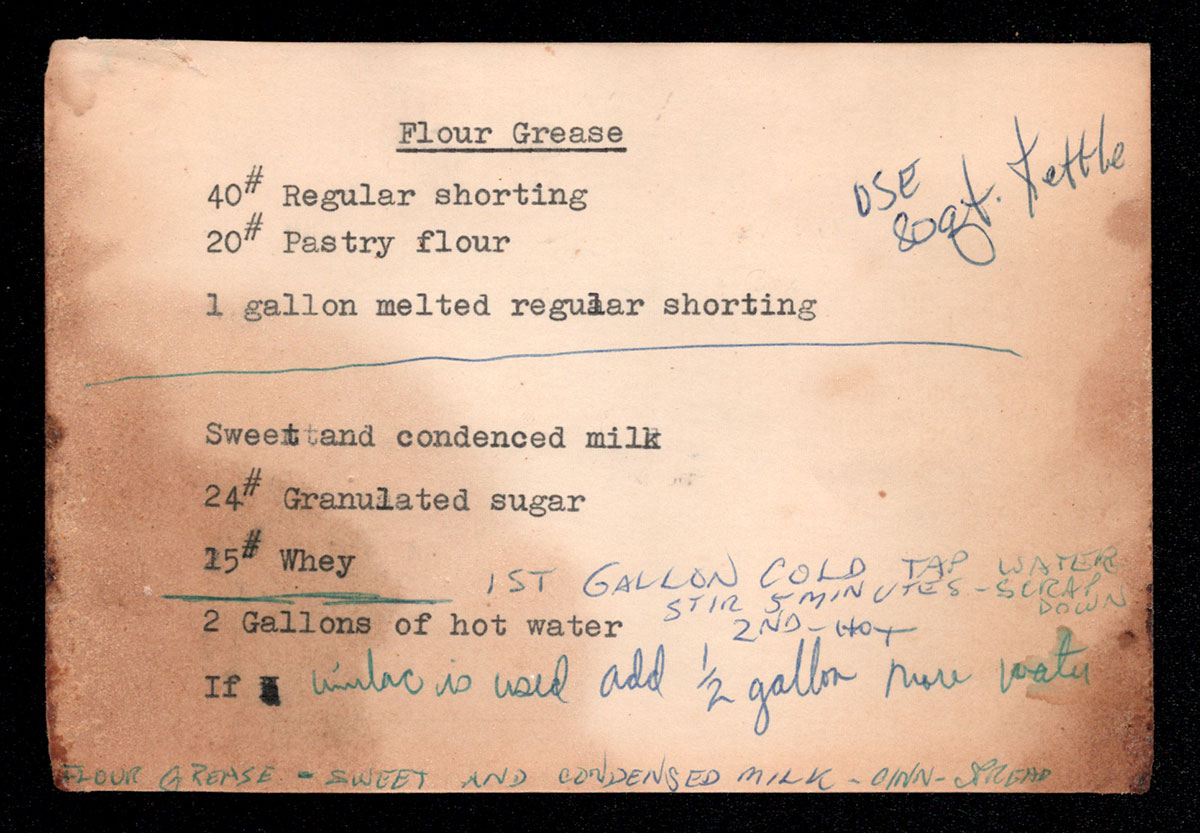 Flour Grease
USE
80 qt. Kettle
40# Regular shorting
20# Pastry flour
1 gallon melted regular shorting
Sweet and condenced milk
24# Granulated sugar
15# Whey
1ST GALLON COLD TAP WATER
STIR 5 MINUTES - SCRAP
DOWN
2 Gallons of hot water
2ND - HOT
If is used add 1/2 gallon more water
FLOUR GREASE - SWEET AND CONDENSED MILK - CINN - SPREAD